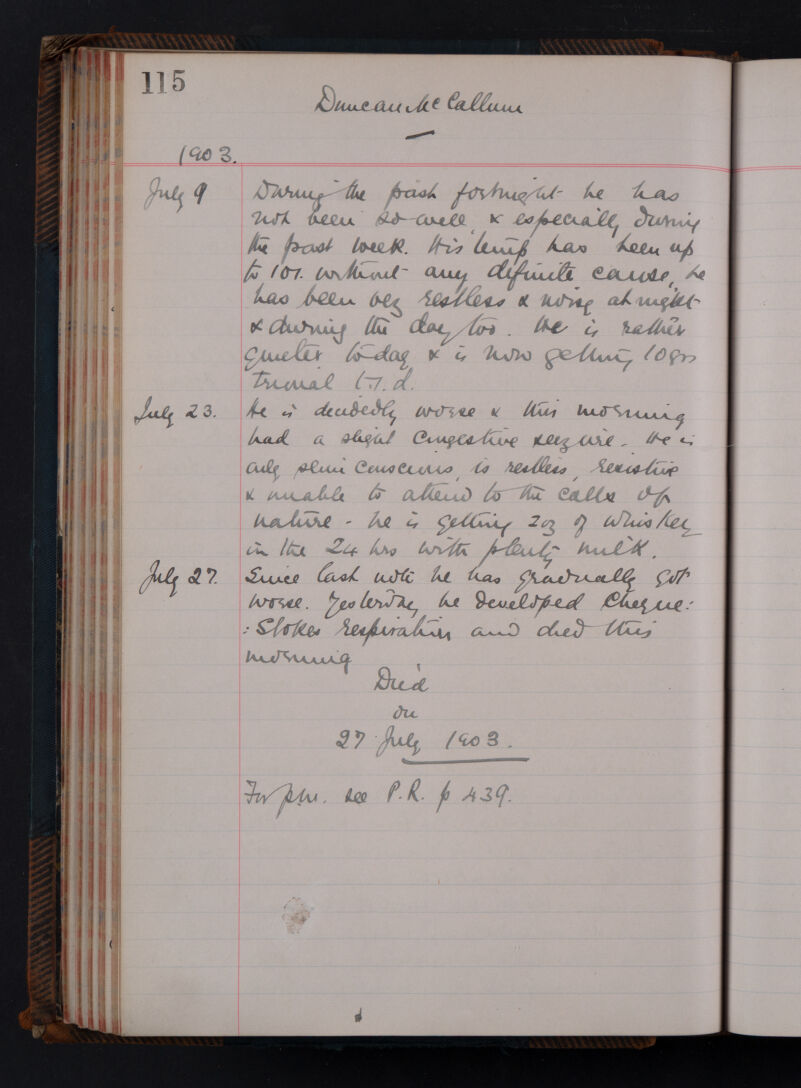 115
Duncan McCallum
1903.
July 9 During the past fortnight he has
not been so well, & especially during
the past week. His temp has been up
to 101. without any definite cause, he
has been very restless & noisy at night
& during the day too. He is rather
quieter to-day & is now getting 10grs
trional t.i.d.
July 23. He is decidedly worse & this morning
had a slight Congestive seizure. He is
only semi conscious, is restless, resistive
& unable to attend to the calls of
nature - he is getting 2oz of whiskey
in the 24 hrs with plenty milk.
July 27. Since last note he has gradually got
worse. Yesterday he developed Cheyne:
:Stokes respiration and died this
morning
Died
on
27 July 1903.
For p.m. see P.R. p 439.